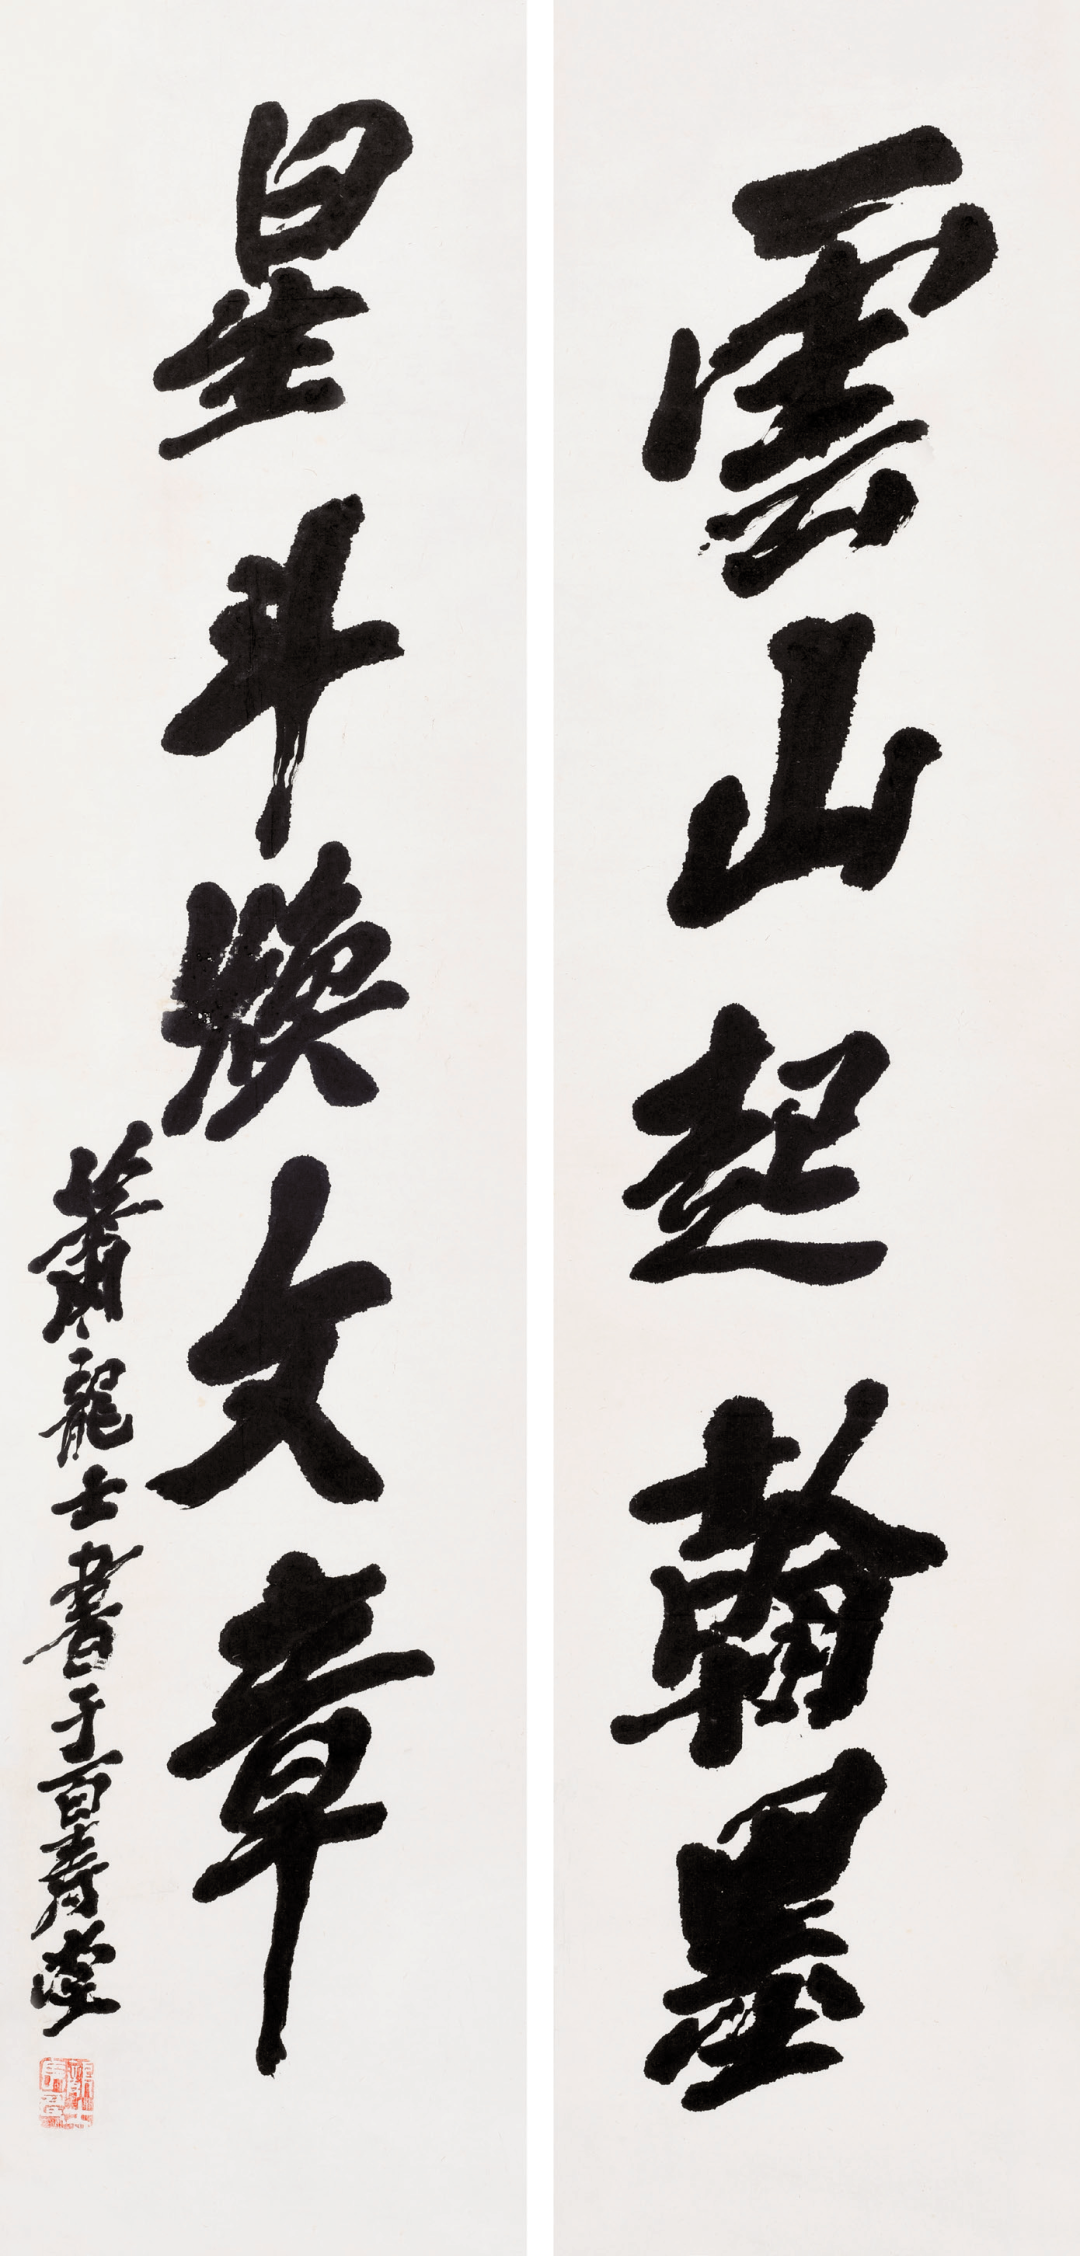 雲山起翰墨
星斗煥文章
蕭龍士書于百壽堂